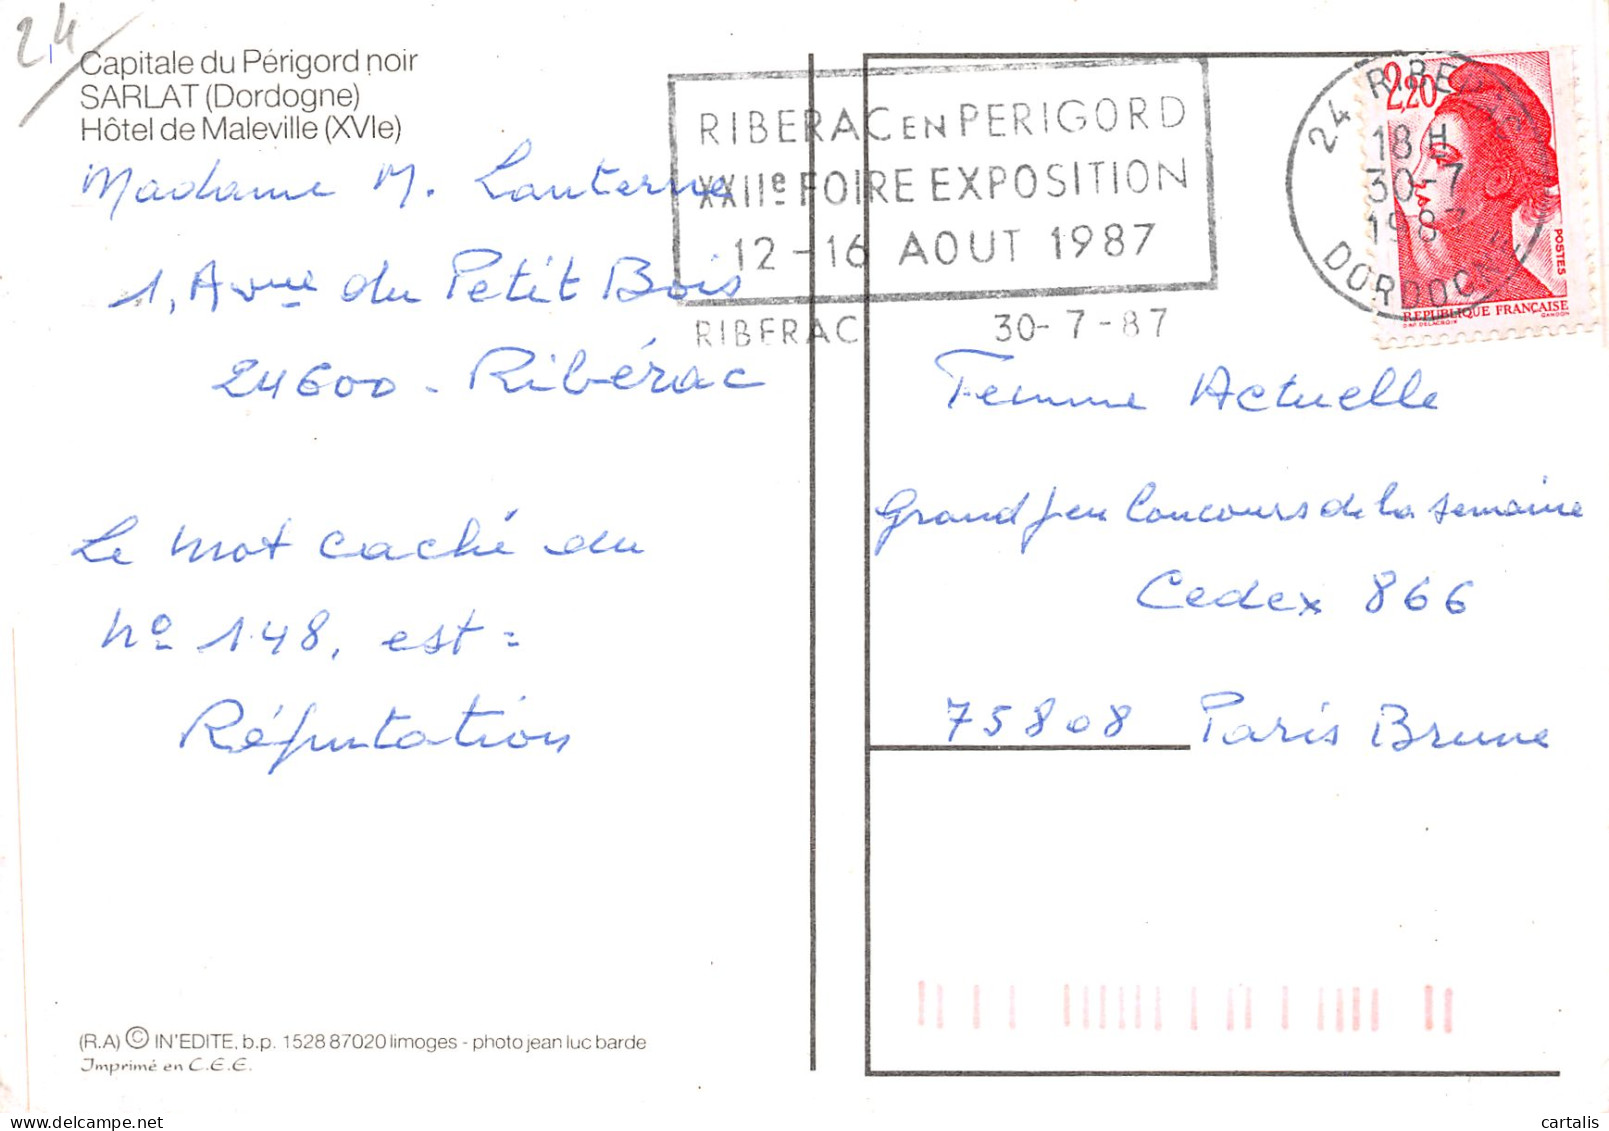 24
Capitale du Périgord noir
SARLAT (Dordogne)
Hôtel de Maleville (XVIe)
Madame M. Lanterne
1, Avue du Petit Bois
24600 - Ribérac
Le mot caché du
No 148, est =
Réputation
(R.A) © IN'EDITE, b.p. 1528 87020 limoges - photo jean luc barde
Imprimé en C.E.E.
RIBERAC EN PERIGORD
XXIIe FOIRE EXPOSITION
12-16 AOUT 1987
RIBERAC 30-7-87
24 RIBERAC
18 H
30-7
1987
DORDOGNE
2,20
POSTES
REPUBLIQUE FRANÇAISE
D'AP. DELACROIX GANDON
Femme Actuelle
Grand jeu Concours de la semaine
Cedex 866
75808 Paris Brune
cartalis